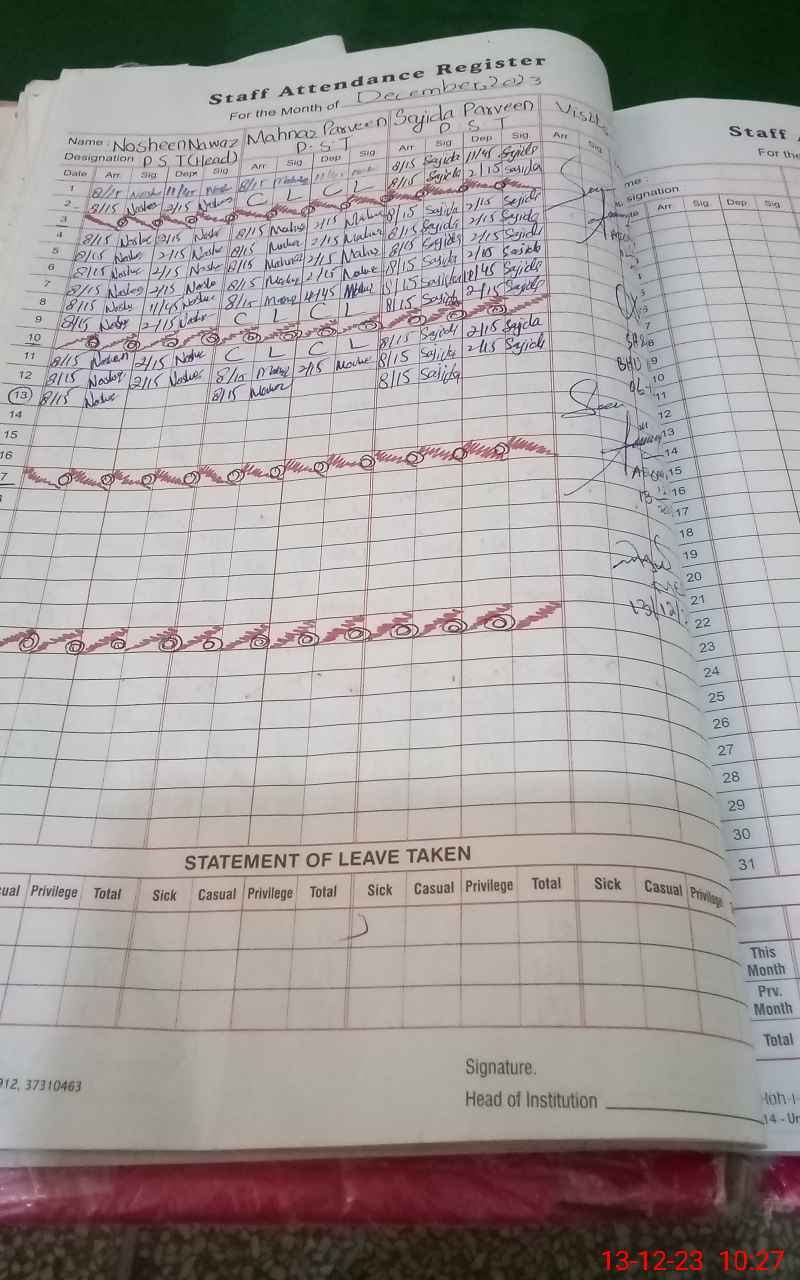 Staff Attendance Register
For the Month of December, 2023
Name : Nosheen Nawaz Mahnaz Parveen Sajida Parveen Visits
Designation P S T (Head) P. S T P S T
Date Arr. Sig Dept Sig Arr Sig Dep Sig Arr Sig Dep Sig. Arr Sig
1 8/15 11/45 8/15 8/15 Sajida 11/45 Sajida
2 8/15 Noshe 2/15 Noshe C L C L 8/15 Sajida 2/15 Sajida
3
4 8/15 Noshe 2/15 Noshe 8/15 Mahnz 2/15 Mahnz 8/15 Sajida 2/15 Sajida
5 8/15 Noshe 2/15 Noshe 8/15 Mahnz 2/15 Mahnz 8/15 Sajida 2/15 Sajida
6 8/15 Noshe 2/15 Noshe 8/15 Mahnz 2/15 Mahnz 8/15 Sajida 2/15 Sajida
7 8/15 Noshe 2/15 Noshe 8/15 Mahnz 2/15 Mahnz 8/15 Sajida 2/15 Sajida
8 8/15 Noshe 11/45 Noshe 8/15 Mahnz 11/45 Mahnz 8/15 Sajida 11/45 Sajida
9 8/15 Noshe 2/15 Noshe C L C L 8/15 Sajida 2/15 Sajida
10
11 8/15 Noshe 2/15 Noshe C L C L 8/15 Sajida 2/15 Sajida
12 8/15 Noshe 2/15 Noshe 8/15 Mahnz 2/15 Mahnz 8/15 Sajida 2/15 Sajida
13 8/15 Noshe 8/15 Mahnz 8/15 Sajida
14
15
16
7
13/12/
STATEMENT OF LEAVE TAKEN
ual Privilege Total Sick Casual Privilege Total Sick Casual Privilege Total Sick Casual Privilege
Signature.
Head of Institution
912, 37310463
Staff
For the
me :
signation
Arr Sig Dep Sig
7
8
9
10
11
12
13
14
15
16
17
18
19
20
21
22
23
24
25
26
27
28
29
30
31
This
Month
Prv.
Month
Total
14 - Ur
13-12-23 10:27